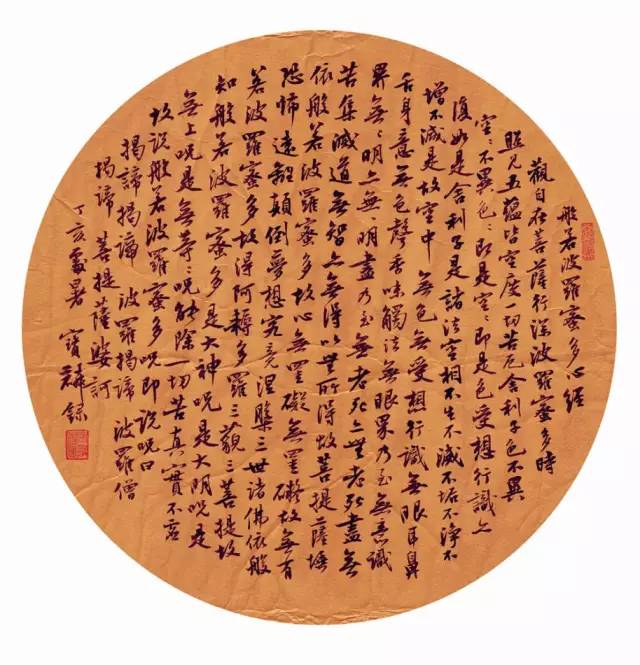 般若波羅蜜多心經
觀自在菩薩行深波羅蜜多時
照見五蘊皆空度一切苦厄舍利子色不異
空〻不異色〻即是空〻即是色受想行識亦
復如是舍利子是諸法空相不生不滅不垢不淨不
增不減是故空中無色無受想行識無眼耳鼻
舌身意無色聲香味觸法無眼界乃至無意識
界無〻明亦無〻明盡乃至無老死亦無老死盡無
苦集滅道無智亦無得以無所得故菩提薩埵
依般若波羅蜜多故心無罣礙無罣礙故無有
恐怖遠離顛倒夢想究竟涅槃三世諸佛依般
若波羅蜜多故得阿耨多羅三藐三菩提故
知般若波羅蜜多是大神咒是大明咒是
無上咒是無等〻咒能除一切苦真實不虛
故說般若波羅蜜多咒即說咒曰
揭諦揭諦波羅揭諦波羅僧
揭諦菩提薩婆訶
丁亥處暑寶麟錄